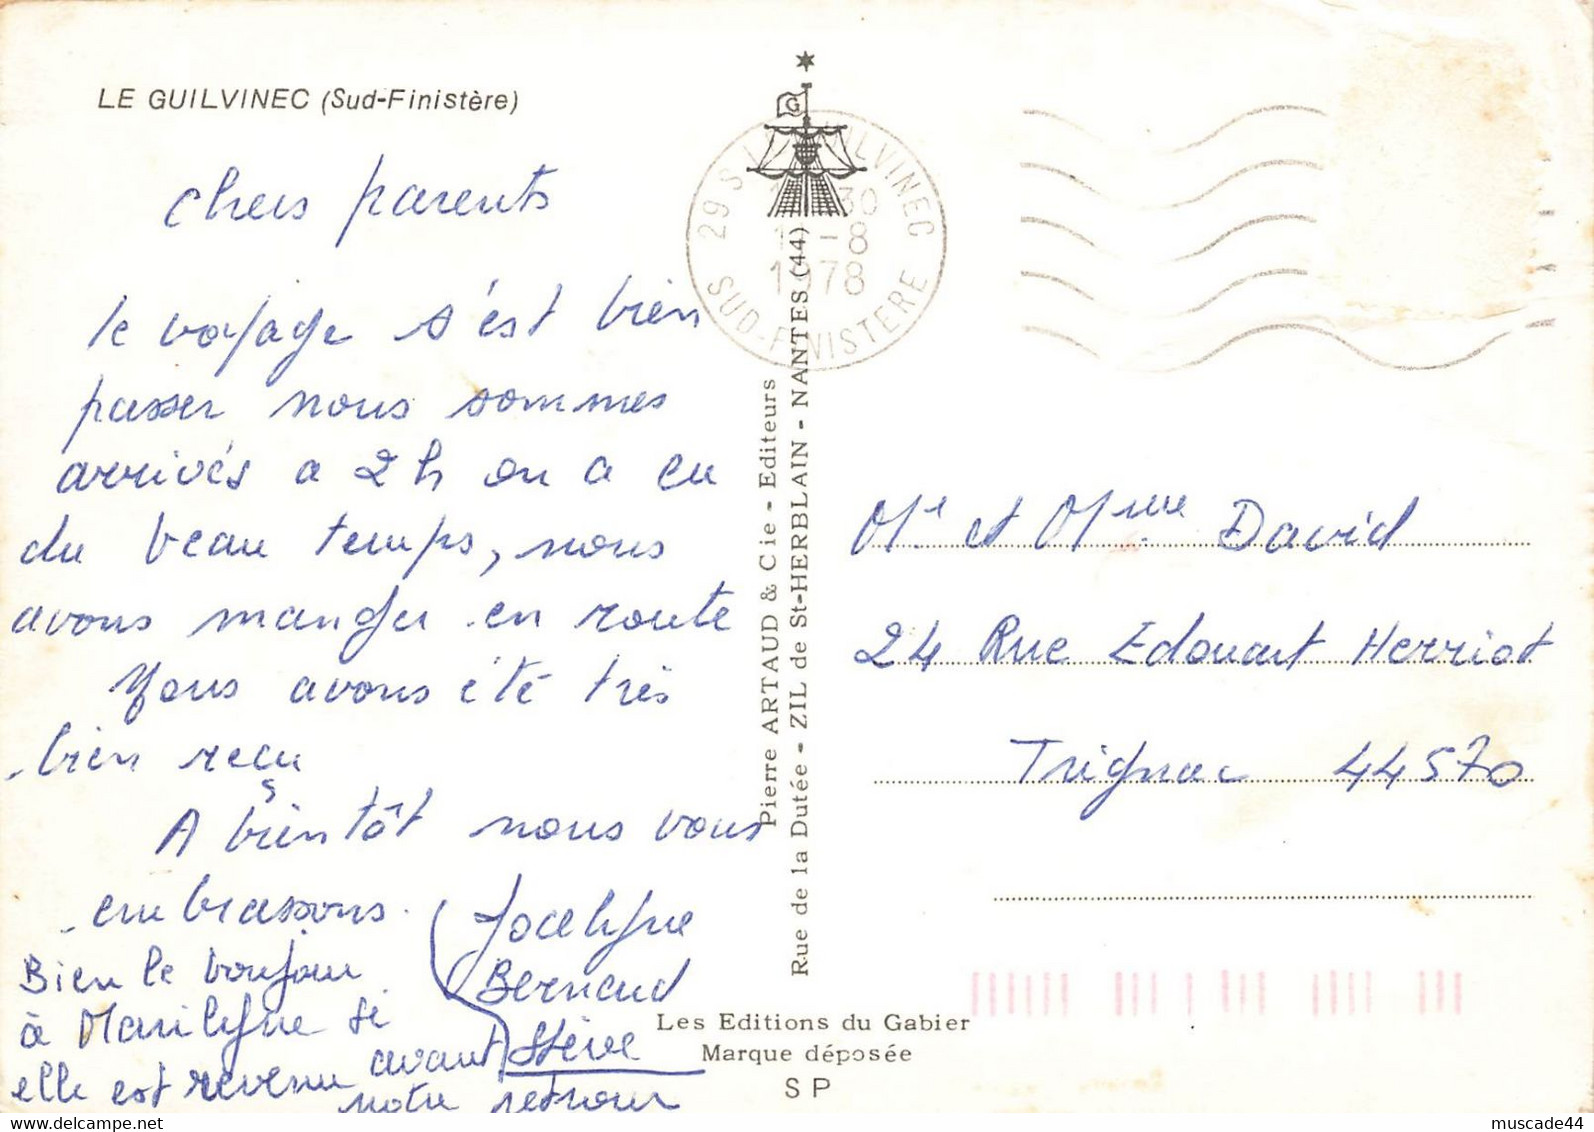 LE GUILVINEC (Sud-Finistère)
Chers parents
le voyage s'est bien
passer nous sommes
arrivés a 2h on a eu
du beau temps, nous
avons manger en route
Nous avons été très
bien reçu
A bientôt nous vous
embrassons.
Jocelyne
Bernard
Stève
Bien le bonjour
à Marilyne si
elle est revenu avant
notre retour
G
29 S LE GUILVINEC
30
-8
1978
SUD-FINISTERE
Pierre ARTAUD & Cie - Editeurs
Rue de la Dutée - ZIL de St-HERBLAIN - NANTES (44)
Les Editions du Gabier
Marque déposée
S P
Mr et Mme David
24 Rue Edouart Herriot
Trignac 44570
muscade44